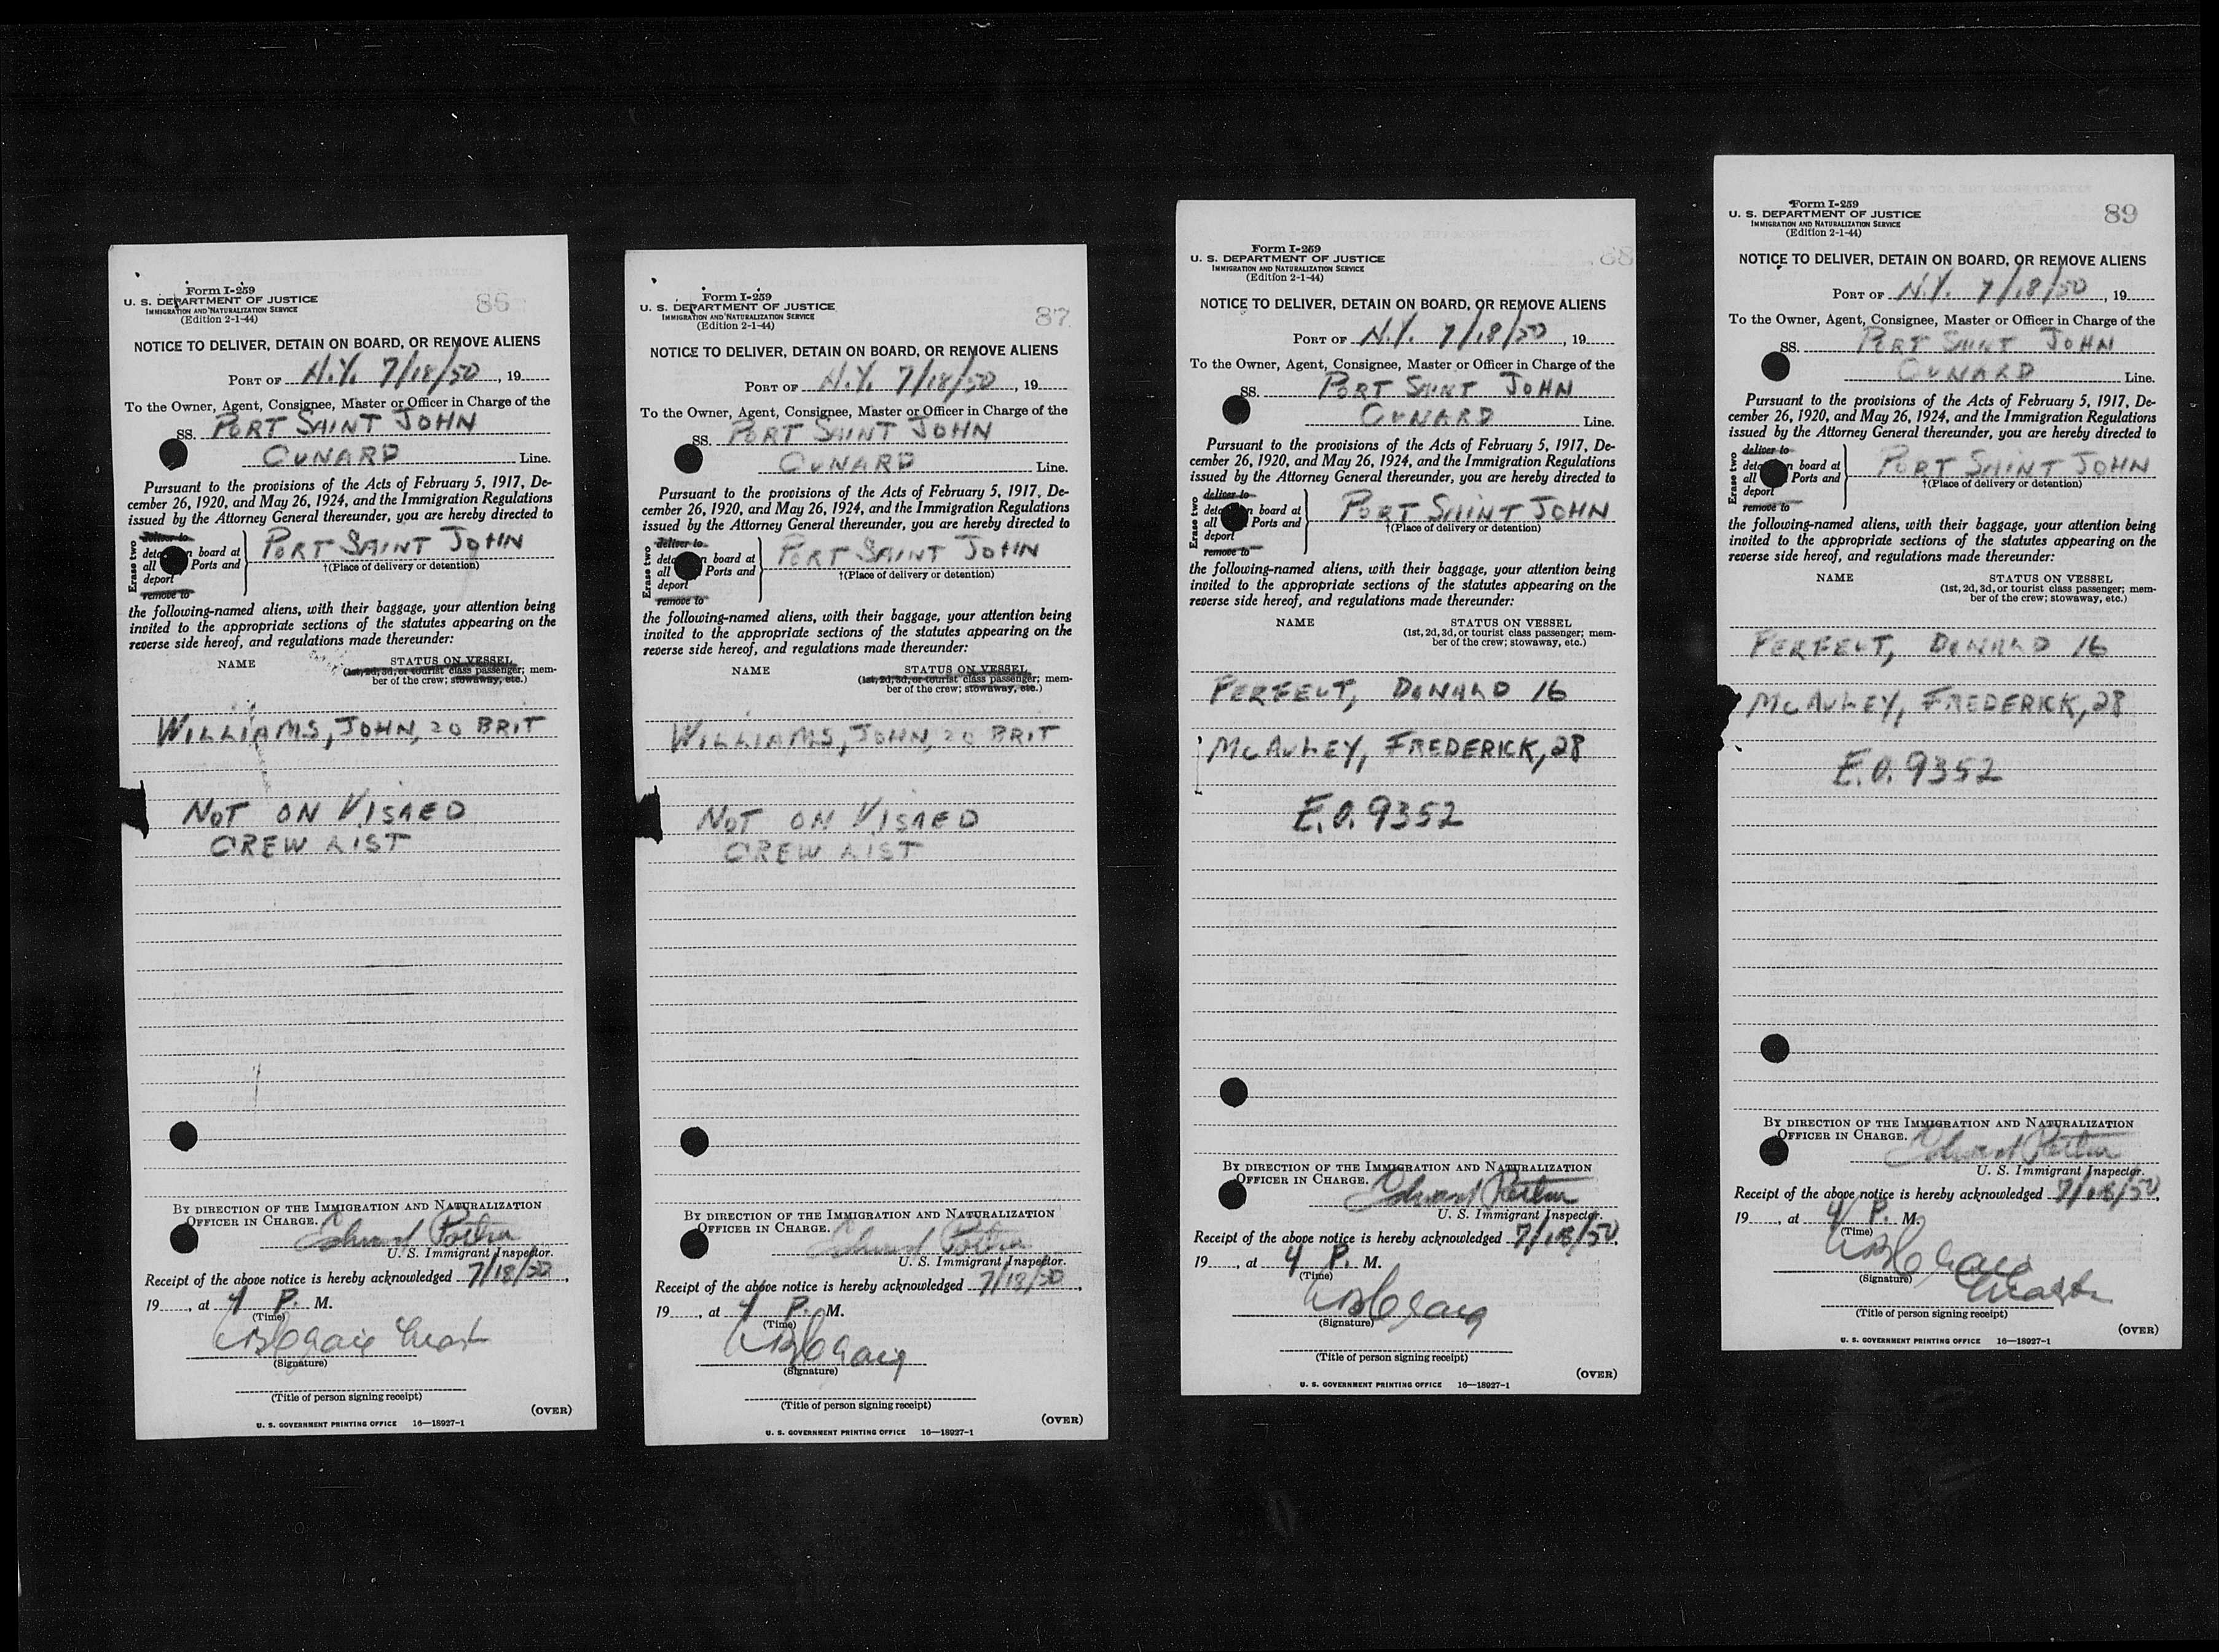 Form I-259
U. S. DEPARTMENT OF JUSTICE
IMMIGRATION AND NATURALIZATION SERVICE
(Edition 2-1-44)
86
NOTICE TO DELIVER, DETAIN ON BOARD, OR REMOVE ALIENS
PORT OF N.Y. 7/18/50, 19
To the Owner, Agent, Consignee, Master or Officer in Charge of the
SS. PORT SAINT JOHN
CUNARD Line.
Pursuant to the provisions of the Acts of February 5, 1917, De-
cember 26, 1920, and May 26, 1924, and the Immigration Regulations
issued by the Attorney General thereunder, you are hereby directed to
Erase two
deliver to
board at
all Ports and
deport
remove to
PORT SAINT JOHN
†(Place of delivery or detention)
the following-named aliens, with their baggage, your attention being
invited to the appropriate sections of the statutes appearing on the
reverse side hereof, and regulations made thereunder:
NAME STATUS ON VESSEL
(1st, 2d, 3d, or tourist class passenger; mem-
ber of the crew; stowaway, etc.)
WILLIAMS, JOHN, 20 BRIT
NOT ON VISAED
CREW LIST
BY DIRECTION OF THE IMMIGRATION AND NATURALIZATION
OFFICER IN CHARGE.
Edward
U. S. Immigrant Inspector.
Receipt of the above notice is hereby acknowledged 7/18/50,
19, at 4 P. M.
(Time)
(Signature)
(Title of person signing receipt)
(OVER)
U. S. GOVERNMENT PRINTING OFFICE 16—18927-1
Form I-259
U. S. DEPARTMENT OF JUSTICE
IMMIGRATION AND NATURALIZATION SERVICE
(Edition 2-1-44)
87
NOTICE TO DELIVER, DETAIN ON BOARD, OR REMOVE ALIENS
PORT OF N.Y. 7/18/50, 19
To the Owner, Agent, Consignee, Master or Officer in Charge of the
SS. PORT SAINT JOHN
CUNARD Line.
Pursuant to the provisions of the Acts of February 5, 1917, De-
cember 26, 1920, and May 26, 1924, and the Immigration Regulations
issued by the Attorney General thereunder, you are hereby directed to
Erase two
deliver to
board at
all Ports and
deport
remove to
PORT SAINT JOHN
†(Place of delivery or detention)
the following-named aliens, with their baggage, your attention being
invited to the appropriate sections of the statutes appearing on the
reverse side hereof, and regulations made thereunder:
NAME STATUS ON VESSEL
(1st, 2d, 3d, or tourist class passenger; mem-
ber of the crew; stowaway, etc.)
WILLIAMS, JOHN, 20 BRIT
NOT ON VISAED
CREW LIST
BY DIRECTION OF THE IMMIGRATION AND NATURALIZATION
OFFICER IN CHARGE.
Edward
U. S. Immigrant Inspector.
Receipt of the above notice is hereby acknowledged 7/18/50,
19, at 4 P. M.
(Time)
(Signature)
(Title of person signing receipt)
(OVER)
U. S. GOVERNMENT PRINTING OFFICE 16—18927-1
Form I-259
U. S. DEPARTMENT OF JUSTICE
IMMIGRATION AND NATURALIZATION SERVICE
(Edition 2-1-44)
88
NOTICE TO DELIVER, DETAIN ON BOARD, OR REMOVE ALIENS
PORT OF N.Y. 7/18/50, 19
To the Owner, Agent, Consignee, Master or Officer in Charge of the
SS. PORT SAINT JOHN
CUNARD Line.
Pursuant to the provisions of the Acts of February 5, 1917, De-
cember 26, 1920, and May 26, 1924, and the Immigration Regulations
issued by the Attorney General thereunder, you are hereby directed to
Erase two
deliver to
board at
all Ports and
deport
remove to
PORT SAINT JOHN
†(Place of delivery or detention)
the following-named aliens, with their baggage, your attention being
invited to the appropriate sections of the statutes appearing on the
reverse side hereof, and regulations made thereunder:
NAME STATUS ON VESSEL
(1st, 2d, 3d, or tourist class passenger; mem-
ber of the crew; stowaway, etc.)
PERFECT, DONALD 16
MCAULEY, FREDERICK, 28
E.O. 9352
BY DIRECTION OF THE IMMIGRATION AND NATURALIZATION
OFFICER IN CHARGE.
Edward
U. S. Immigrant Inspector.
Receipt of the above notice is hereby acknowledged 7/18/50,
19, at 4 P. M.
(Time)
(Signature)
(Title of person signing receipt)
(OVER)
U. S. GOVERNMENT PRINTING OFFICE 16—18927-1
Form I-259
U. S. DEPARTMENT OF JUSTICE
IMMIGRATION AND NATURALIZATION SERVICE
(Edition 2-1-44)
89
NOTICE TO DELIVER, DETAIN ON BOARD, OR REMOVE ALIENS
PORT OF N.Y. 7/18/50, 19
To the Owner, Agent, Consignee, Master or Officer in Charge of the
SS. PORT SAINT JOHN
CUNARD Line.
Pursuant to the provisions of the Acts of February 5, 1917, De-
cember 26, 1920, and May 26, 1924, and the Immigration Regulations
issued by the Attorney General thereunder, you are hereby directed to
Erase two
deliver to
board at
all Ports and
deport
remove to
PORT SAINT JOHN
†(Place of delivery or detention)
the following-named aliens, with their baggage, your attention being
invited to the appropriate sections of the statutes appearing on the
reverse side hereof, and regulations made thereunder:
NAME STATUS ON VESSEL
(1st, 2d, 3d, or tourist class passenger; mem-
ber of the crew; stowaway, etc.)
PERFECT, DONALD 16
MCAULEY, FREDERICK, 28
E.O. 9352
BY DIRECTION OF THE IMMIGRATION AND NATURALIZATION
OFFICER IN CHARGE.
Edward
U. S. Immigrant Inspector.
Receipt of the above notice is hereby acknowledged 7/18/50,
19, at 4 P. M.
(Time)
(Signature)
Master
(Title of person signing receipt)
(OVER)
U. S. GOVERNMENT PRINTING OFFICE 16—18927-1